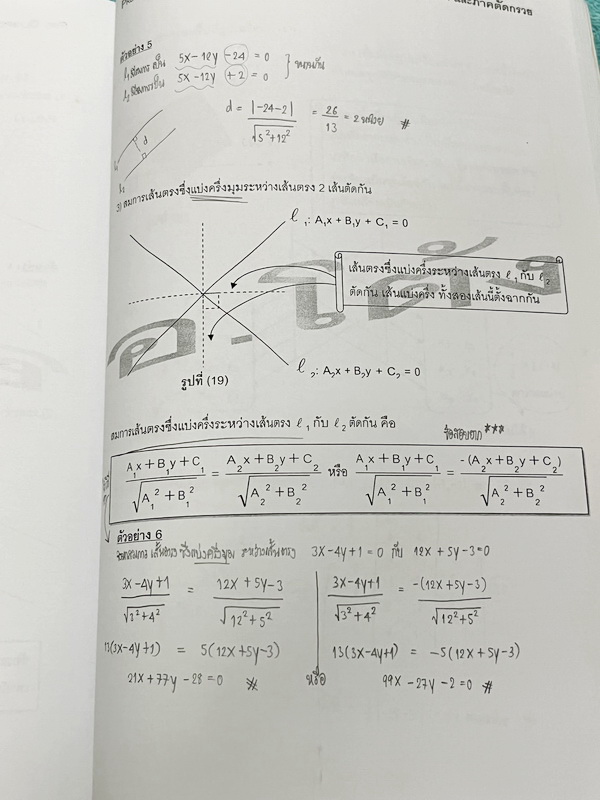 และภาคตัดกรวย
ตัวอย่าง 5
l₁ มีสมการเป็น 5x-12y -24 = 0
l₂ มีสมการเป็น 5x-12y +2 = 0
ขนานกัน
d = |-24-2| / √5²+12² = 26/13 = 2 หน่วย #
d
l₁
l₂
3) สมการเส้นตรงซึ่งแบ่งครึ่งมุมระหว่างเส้นตรง 2 เส้นตัดกัน
ℓ₁: A₁x + B₁y + C₁ = 0
เส้นตรงซึ่งแบ่งครึ่งระหว่างเส้นตรง ℓ₁ กับ ℓ₂
ตัดกัน เส้นแบ่งครึ่ง ทั้งสองเส้นนี้ตั้งฉากกัน
ℓ₂: A₂x + B₂y + C₂ = 0
รูปที่ (19)
สมการเส้นตรงซึ่งแบ่งครึ่งระหว่างเส้นตรง ℓ₁ กับ ℓ₂ ตัดกัน คือ
***
A₁x+B₁y+C₁ / √A₁²+B₁² = A₂x+B₂y+C₂ / √A₂²+B₂² หรือ A₁x+B₁y+C₁ / √A₁²+B₁² = -(A₂x+B₂y+C₂) / √A₂²+B₂²
ตัวอย่าง 6
สมการ เส้นตรง ซึ่งแบ่งครึ่งมุม ระหว่างเส้นตรง 3x-4y+1=0 กับ 12x+5y-3=0
3x-4y+1 / √3²+4² = 12x+5y-3 / √12²+5²
3x-4y+1 / √3²+4² = -(12x+5y-3) / √12²+5²
13(3x-4y+1) = 5(12x+5y-3)
13(3x-4y+1) = -5(12x+5y-3)
21x+77y-28=0 #
หรือ
99x-27y-2=0 #